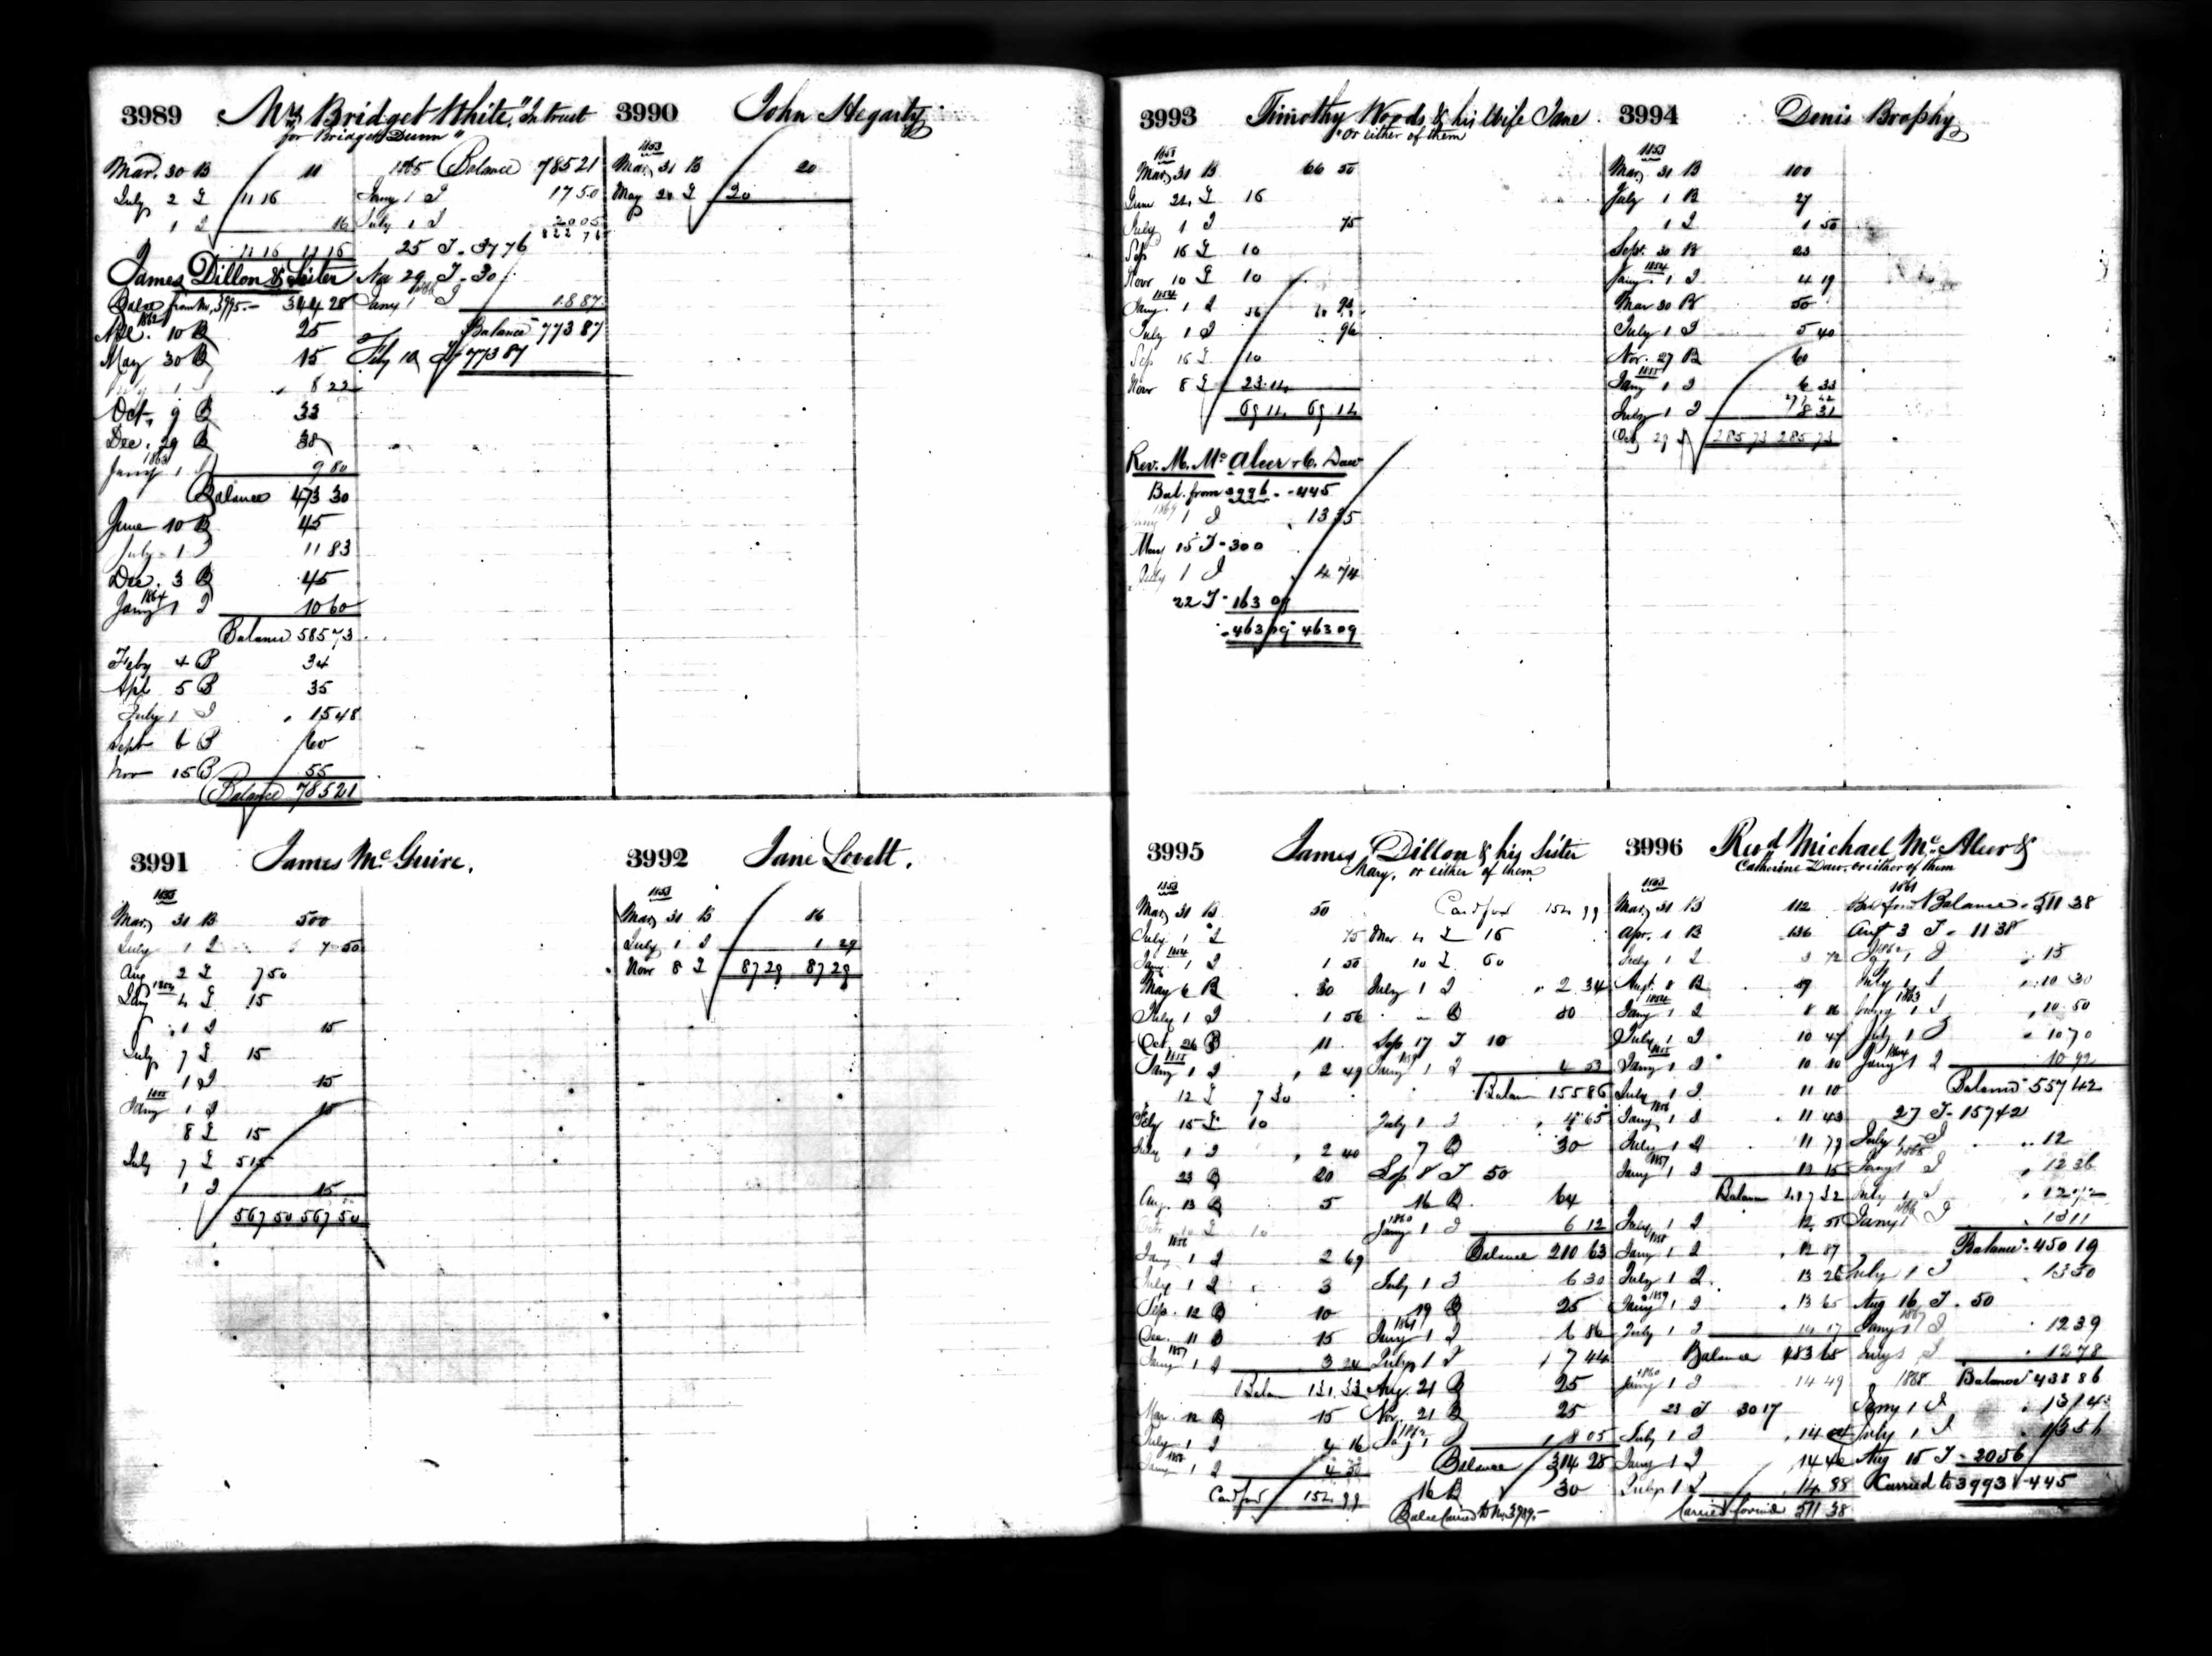 3989 Mrs Bridget White, "In trust
for Bridget Dunn"
Mar. 30 B 11
July 2 T 11 16
1 I 16
11 16 11 16
James Dillon & Sister
Balce from No. 3995.- 344 28
1862
10 B 25
May 30 B 15
1 8 22
Oct. 9 B 33
Dec. 29 B 38
1863
Jany 1 I 9 80
Balance 473 30
June 10 B 45
July 1 I 11 83
Dec. 3 B 45
1864
Jany 1 I 10 60
Balance 585 73
Feby 4 B 34
Apl 5 B 35
July 1 I 15 48
Sept 6 B 60
Nov 15 B 55
Balance 785 21
1865 Balance 785 21
Jany 1 I 17 50
July 1 I 20 05
822 76
25 T - 37 76
Nov 29 T - 30
1866
Jany 1 I 18 87
Balance 773 87
Feby 10 T 773 87
3990 John Hegarty
1853
Mar. 31 B 20
May 20
3991 James McGuire.
1853
Mar. 31 B 500
July 1 I 7 50
Aug 2 T 7 50
1854
Jany 4 T 15
1 I 15
July 7 T 15
1 I 15
1855
Jany 1 I 15
8 T 15
July 7 T 515
1 I 15
567 50 567 50
3992 Jane Lovett.
1853
Mar. 31 B 86
July 1 I 1 29
Novr 8 T 87 29 87 29
3993 Timothy Woods & his Wife Jane
"or either of them
1853
Mar. 31 B 66 50
June 24 T 16
July 1 I 75
Sep 16 T 10
Novr 10 T 10
1854
Jany 1 I
July 1 I 96
Sep 16 T 10
Novr 8 T 23 14
69 14 69 14
Rev. M. McAleer & C. Daw
Bal. from 3996 - 445
1869
Jany 1 I 13 35
May 15 T - 300
July 1 I 4 74
22 T - 163 09
463 09 463 09
3994 Denis Brophy
1853
Mar. 31 B 100
July 1 B 27
1 I 1 50
Sept. 30 B 23
1854
Jany 1 I 4 19
Mar 30 B 50
July 1 I 5 40
Nov. 27 B 60
1855
Jany 1 I 6 33
277 42
July 1 I 8 31
Oct 29 T 285 73 285 73
3995 James Dillon & his Sister
Mary, or either of them
1853
Mar. 31 B 50
July 1 I 75
1854
Jany 1 I 1 50
May 6 B 30
July 1 I 1 56
Oct. 26 B 11
1855
Jany 1 I 2 49
12 T 7 30
Feby 15 T 10
July 1 I 2 40
23 B 20
Aug. 13 B 5
10 T 10
1856
Jany 1 I 2 69
July 1 I 3
Sep. 12 B 10
Dec. 11 B 15
1857
Jany 1 I 3 24
Balan 131 33
Mar. 12 B 15
July 1 I 4 16
1858
Jany 1 I 4 50
Card ford 154 99
Card ford 154 99
Mar 4 T 15
10 T 60
July 1 I 2 34
" B 80
Sep 17 T 10
1859
Jany 1 I 4 53
Balan 155 86
July 1 I 4 65
7 B 30
Sep 8 T 50
16 B 64
1860
Jany 1 I 6 12
Balance 210 63
July 1 I 6 30
19 B 25
1861
Jany 1 I 6 86
July 1 I 7 44
Aug. 21 B 25
Nov. 21 B 25
1862
Jany 1 I 8 05
Balance 314 28
16 B 30
Balce Carried to No. 3989.-
3996 Revd Michael Mc.Aleer &
Catherine Daw, or either of them
1853
Mar. 31 B 112
Apr. 1 B 136
July 1 I 3 72
Augt. 8 B 89
1854
Jany 1 I
July 1 I 10 47
1855
Jany 1 I 10 80
July 1 I 11 10
1856
Jany 1 I 11 43
July 1 I 11 79
1857
Jany 1 I 12 15
Balan 417 32
July 1 I 12 51
1858
Jany 1 I 12 87
July 1 I 13 26
1859
Jany 1 I 13 65
July 1 I 14 07
Balance 483 68
1860
Jany 1 I 14 49
23 T 30 17
July 1 I 14 04
Jany 1 I 14 46
July 1 I 14 88
Carried forward 511 38
1861
Balance 511 38
Augt 3 T - 11 38
1862
Jany 1 I 15
July 1 I 10 30
1863
Jany 1 I 10 50
July 1 I 10 70
1864
Jany 1 I 10 92
Balance 557 42
27 T - 157 42
July 1 I 12
1865
Jany 1 I 12 36
July 1 I 12 72
1866
Jany 1 I 13 11
Balance 450 19
July 1 I 13 50
Aug 16 T - 50
1867
Jany 1 I 12 39
July 1 I 12 78
1868 Balance 438 86
Jany 1 I 13 14
July 1 I 13 56
Aug 15 T - 20 56
Carried to 3993 - 445